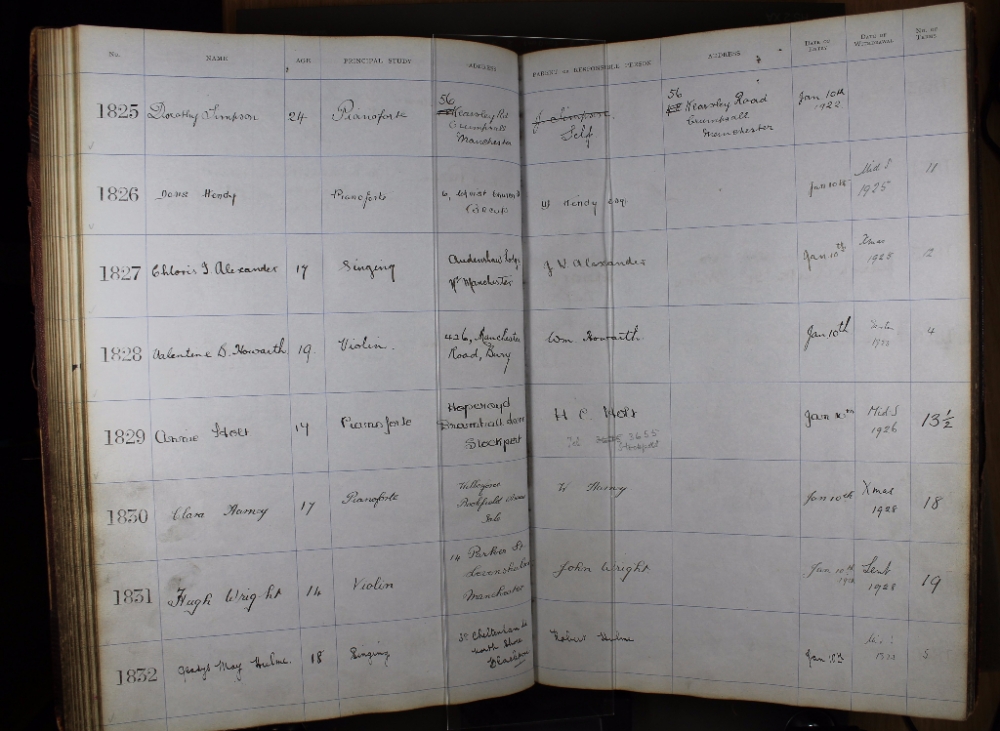 No. NAME AGE PRINCIPAL STUDY ADDRESS PARENT or RESPONSIBLE PERSON ADDRESS DATE OF ENTRY DATE OF WITHDRAWAL No. OF TERMS
1825 Dorothy Simpson 24 Pianoforte 56 Kearsley Rd Crumpsall Manchester J. Simpson. Self 56 Kearsley Road Crumpsall Manchester Jan 10th 1922
1826 Hendy Pianoforte 6, Hendy Esq. Jan 10th Mid S 1925 11
1827 Chloris J. Alexander 17 Singing Audenshaw Lodge Nr Manchester J. V. Alexander Jan 10th Xmas 1925 12
1828 Valentine D. Howarth 19. Violin. 426, Manchester Road, Bury Wm Howarth Jan 10th 4
1829 Annie Holt 17 Pianoforte Hoperoyd Bramhall Lane Stockport H. C. Holt Tel 3655 Stockport Jan 10th Mid S 1926 13½
1830 Clara 17 Pianoforte Brookfield Sale W Jan 10th Xmas 1928 18
1831 Hugh Wright 14 Violin 14 Parker St Levenshulme Manchester John Wright Jan 10th Lent 1928 19
1832 Gladys May Hulme. 18 Singing Cheltenham Rd North Shore Blackpool Robert Hulme Jan 5